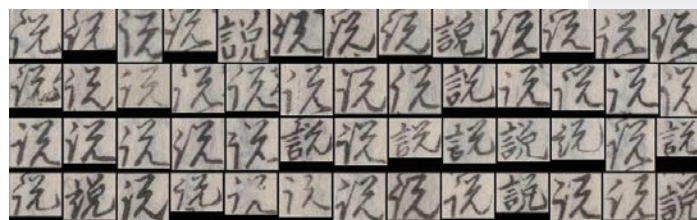 说说说说說说说说說说说说说
说说说说说说说说說说说说说
说说说说说說说說說說说说說
说說说说说说说说说說说说說